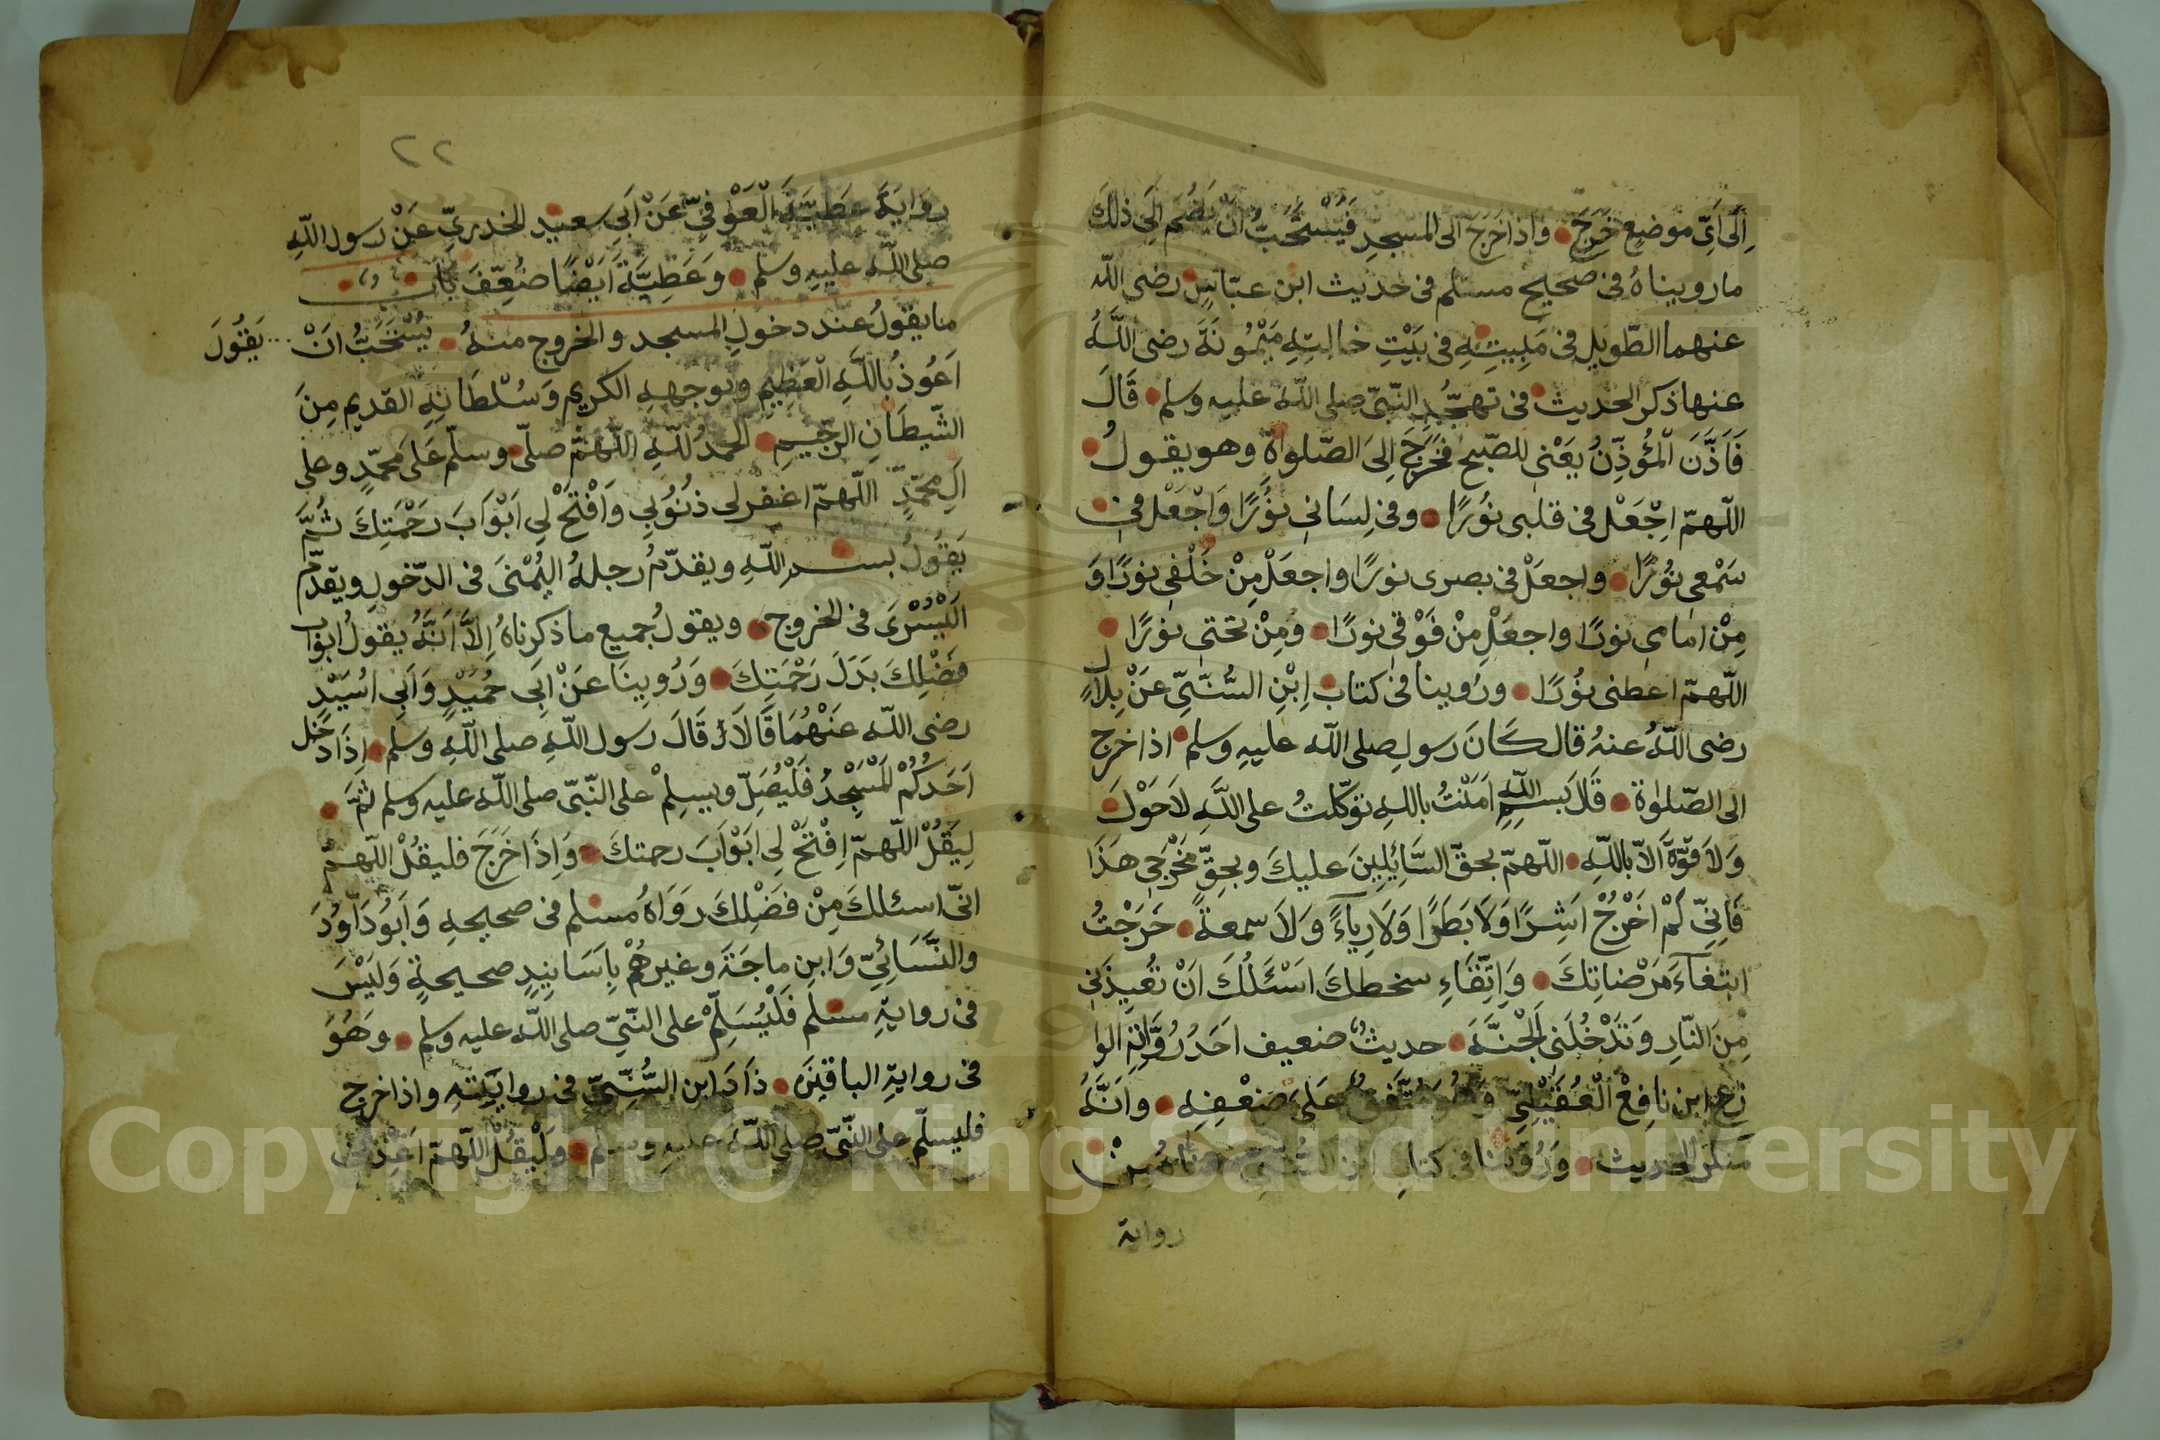 اِلَى اَيِّ موضعٍ خَرَجَ واذا خَرَجَ الى المسجدِ فَيُسْتَحَبُّ انْ يَضُم اِلَى ذلكَ
ما رويناهُ فى صحيح مسلم فى حديث ابن عبّاسٍ رضى اللّه
عنهما الطّويل فى مَبِيتِهِ فى بَيْتِ خالتِهِ مَيْمُونَةَ رضى اللّهُ
عنها ذكر الحديث فى تهجُّدِ النّبىّ صلى اللّه عليه وسلم قَالَ
فَاَذَّنَ الْمُؤَذِّنُ يَعْنى للصّبح فَخَرَجَ اِلىَ الصَّلواةِ وهو يقولُ
اللّهمّ اجْعَلْ فى قلبى نُورًا وفى لِسَانى نُورًا وَاجْعَلْ فى
سَمْعى نُورًا واجعَلْ فى بصرى نورًا واجعَلْ مِنْ خَلْفى نورًا وَ
مِنْ امامى نورًا واجعَلْ مِنْ فَوْقى نورًا ومِنْ تحتى نورًا
اللّهمّ اعطنى نُورًا ورُوينا فى كتاب اِبْنِ السُّنّىِّ عَنْ بِلالٍ
رضى اللّهُ عنهُ قال كَانَ رسول صلى اللّه عليهِ وسلم اذا خرج
الى الصّلوٰة قَالَ بسم اللّهِ اَمَنْتُ باللهِ توكّلتُ على اللّهِ لاَحَوْلَ
وَلاَ قوَّةَ اَلاّ باللّهِ اللّهمّ بحقّ السَّائِلِينَ عليكَ وبحقِّ مَخْرَجى هَذَا
فَاِنِّى لَمْ اَخْرُجْ اَشِرًا وَلاَ بَطَرًا وَلاَ رِيآءً وَلاَ سمعةً خَرَجْتُ
ابتغآءَ مَرْضاتِكَ وَاِتِّقَاءِ سخطكَ اسْئَلُكَ انْ تُعِيذَنِى
مِنَ النّارِ وَتَدْخُلَنى الْجنَّةَ حديثٌ ضعيف احَدُ رُوَّاتِهِ الوا
زع ابن نافِعْ الْعُقَيْلِىّ وَهُوَ مُتَّفَقٌ عَلىَ ضَعْفِهِ وانَّهُ
منكر الحديث وَرُوِّينا فى كتابِ ابن السُّنّى معناهُ مِنْ
رواية
٢٢
روَايَةَ عَطِيَّةَ الْعَوْفىِّ عَنْ اَبى سعيد الخدرىِّ عَنْ رسول اللّهِ
صلى اللّه عليهِ وسلم وَعَطِيَّةَ اَيْضًا ضُعِّفَ باب
ما يقولُ عند دخولِ المسجد والخروج منهُ يُسْتَحَبُّ انَ يَقُولَ
اَعُوذُ باللّهِ الْعَظِيمِ وبوجههِ الكريم وَسُلْطَانِهِ القديم مِنَ
الشّيطَانِ الرّجيمِ الحمدُ للّهِ اللّهمّ صلّى وسلّم عَلَى مَحمّدٍ وعلى
اَلِ مَحمّدٍ اللّهمّ اغفر لى ذنُوبى وَافْتَحْ لى اَبْوَابَ رَحْمَتِكَ ثُمَّ
يَقُولُ بسم اللّهِ ويقدّم رجلهُ اليُمْنىَ فى الدّخولِ ويقدّم
الْيُسْرَىَ فى الخروج ويقول جُميع ما ذكرناهُ اِلاّ اَنَّهُ يقولُ ابوَاب
فَضْلِكَ بَدَلَ رَحْمَتِكَ وَرُوينَا عَنْ اَبى حُمَيْدٍ وَاَبى اُسَيْدٍ
رضى اللّه عَنْهُمَا قَالاَ قَالَ رسول اللّهِ صلى اللّهِ وسلم اِذَا دَخَل
اَحَدُكُمْ الْمَسْجِدُ فَلْيُصَلّ ويسلِمْ على النّبّى صلى اللّه عليه وسلم ثُمَّ
لِيَقُلْ اللّهمّ اِفْتَحْ لى ابَوْاَبَ رحمتكَ وَاِذَا خَرَجَ فليقُلْ اللّهمّ
انّى اسئلكَ مِنْ فَضْلِكَ رَوَاهُ مسلم فى صحيحهِ وَاَبُودَاوُدَ
والنَّسَائِىّ وَابن ماجَةَ وغيرهُمْ بِاسَانِيدٍ صحيحةٍ وَلَيْسَ
فى روايةِ مسلم فَلْيُسَلِّمْ على النّبىِّ صلى اللّه عليه وسلم وَهُوَ
فى روايةِ الباقينَ ذَادَ ابن السُّنىّ فى روايَتهِ واذا خرج
فليسلّم على النّبىّ صلى اللّه عليهِ وسلم وَلْيقُلْ اللّهمّ اَعِذْنى
Copyright © King Saud University